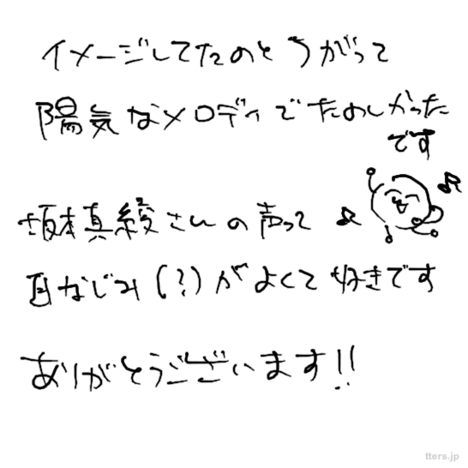 イメージしてたのとちがって
陽気なメロディでたのしかった
です
坂本真綾さんの声って
耳なじみ(?)がよくて好きです
ありがとうございます!!
tters.jp